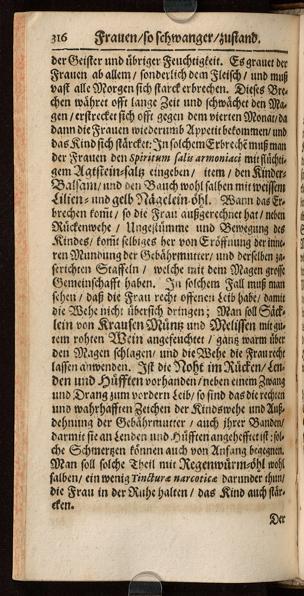 316 Frauen/ so schwanger/ zustand.
der Geister und übriger Feuchtigkeit. Es grauet der
Frauen ab allem/ sonderlich dem Fleisch/ und muß
vast alle Morgen sich starck erbrechen. Dieses Bre-
chen währet offt lange Zeit und schwächet den Ma-
gen/ erstrecket sich offt gegen dem vierten Monat/ da
dann die Frauen wiederumb Appetit bekommen/ und
das Kind sich stärcket: In solchem Erbreche muß man
der Frauen den Spiritum salis armoniaci mit flüchti-
gem Agtstein-saltz eingeben/ item/ den Kinder-
Balsam/ und den Bauch wohl salben mit weissem
Lilien- und gelb Nägelein-öhl. Wann das Er-
brechen kom̃t/ so die Frau außgerechnet hat/ neben
Rückenwehe/ Ungestümme und Bewegung des
Kindes/ kom̃t selbiges her von Eröffnung der inne-
ren Mundung der Gebährmutter/ und derselben za-
serichten Staffeln/ welche mit dem Magen grosse
Gemeinschafft haben. In solchem Fall muß man
sehen/ daß die Frau recht offenen Leib habe/ damit
die Wehe nicht übersich dringen; Man soll Säck-
lein von Krausen Müntz und Melissen mit gu-
tem rohten Wein angefeuchtet/ gantz warm über
den Magen schlagen/ und die Wehe die Frau recht
lassen anwenden. Ist die Noht im Rücken/ Len-
den und Hüfften vorhanden/ neben einem Zwang
und Drang zum vordern Leib/ so sind das die rechten
und wahrhafften Zeichen der Kindswehe und Auß-
dehnung der Gebährmutter/ auch ihrer Banden/
darmit sie an Lenden und Hüfften angehefftet ist: sol-
che Schmertzen können auch von Anfang begegnen.
Man soll solche Theil mit Regenwürm-öhl wohl
salben/ ein wenig Tincturæ narcoticæ darunder thun/
die Frau in der Ruhe halten/ das Kind auch stär-
cken.
Der